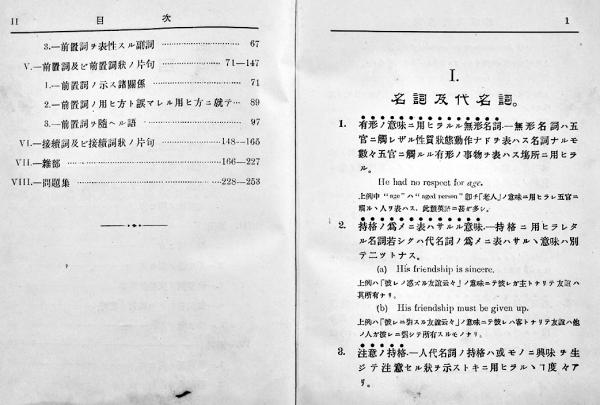 II 目次
3.—前置詞ヲ表性スル副詞 67
V.—前置詞及ビ前置詞狀ノ片句 71—147
1.—前置詞ノ示ス諸關係 71
2.—前置詞ノ用ヒ方ト誤マレル用ヒ方ニ就テ 89
3.—前置詞ヲ隨ヘル語 97
VI.—接續詞及ビ接續詞狀ノ片句 148—165
VII.—雜部 166—227
VIII.—問題集 228—253
1
I.
名詞及代名詞。
1. 有形ノ意味ニ用ヒラルル無形名詞.—無形名詞ハ五
官ニ觸レザル性質狀態動作ナドヲ表ハス名詞ナルモ
數々五官ニ觸ルル有形ノ事物ヲ表ハス場所ニ用ヒラ
ル。
He had no respect for age.
上例中 "age" ハ "aged person" 卽チ「老人」ノ意味ニ用ヒラレ五官ニ
觸ルヽ人ヲ表ハス、此類英語ニ甚ダ多シ。
2. 持格ノ爲メニ表ハサルル意味.—持格ニ用ヒラレタ
ル名詞若シクハ代名詞ノ爲メニ表ハサルヽ意味ハ別
テ二ツトナス。
(a) His friendship is sincere.
上例ハ「彼レノ感ズル友誼云々」ノ意味ニテ彼レガ主トナリテ友誼ハ
其所有ナリ。
(b) His friendship must be given up.
上例ハ「彼レニ對スル友誼云々」ノ意味ニテ彼レハ客トナリテ友誼ハ他
ノ人ガ彼レニ對シテ所有スルモノナリ。
3. 注意ノ持格.—人代名詞ノ持格ハ或モノニ興味ヲ生
ジテ注意セル狀ヲ示ストキニ用ヒラルヽヿ度々ア
リ。